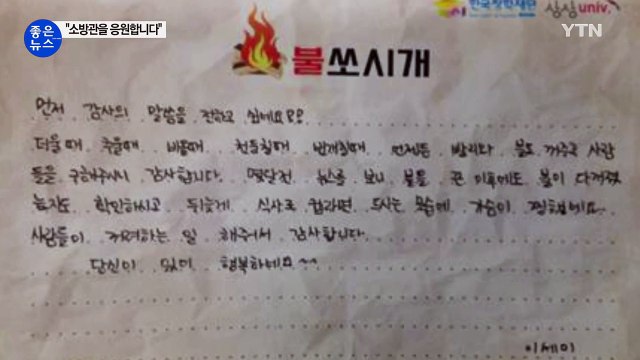 좋은 뉴스 "소방관을 응원합니다"
한국장학재단 상상univ.
YTN
불쏘시개
먼저 감사의 말씀을 전하고 싶네요??
더울때 추울때 비올때 천둥칠때 번개칠때 언제든 달려와 불도 꺼주고 사람
들을 구해주셔서 감사합니다. 몇달전 뉴스를 보니 불을 끈 이후에도 불이 다꺼졌
는지도 확인하시고 뒤늦게 식사로 컵라면 드시는 모습에 가슴이 찡했네요
사람들이 꺼려하는 일 해주어서 감사합니다
당신이 있어 행복하네요~~
이세미